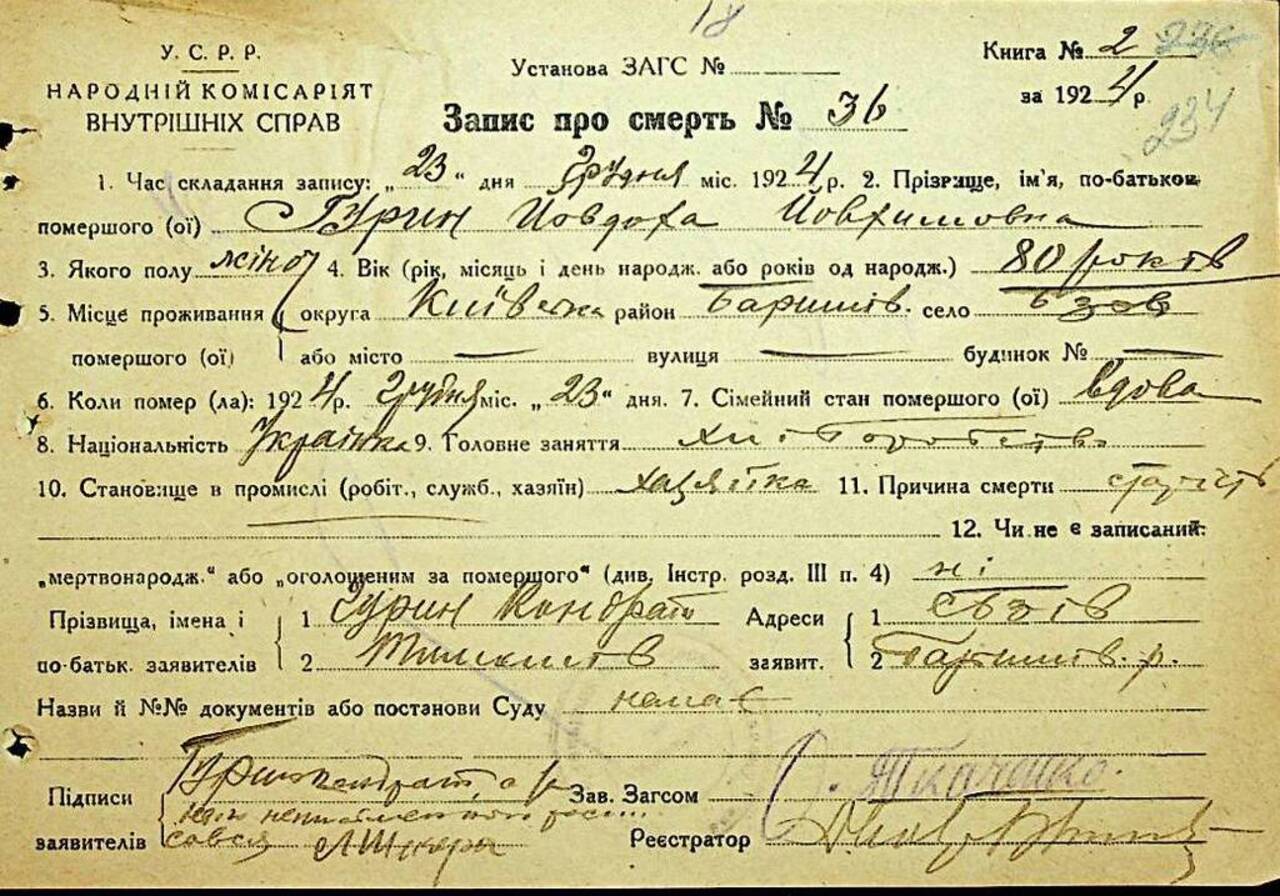 18
У. С. Р. Р.
НАРОДНІЙ КОМІСАРІЯТ
ВНУТРІШНІХ СПРАВ
Установа ЗАГС №
Книга № 2 236
за 1924 р.
234
Запис про смерть № 36
1. Час складання запису: „23“ дня Грудня міс. 1924 р. 2. Прізвище, ім'я, по-батькові
помершого (ої) Гурин Йовдоха Йовхимовна
3. Якого полу жіно 4. Вік (рік, місяць і день народж. або років од народж.) 80 років
5. Місце проживання округа Київська район Баришів. село Бзов
помершого (ої) або місто — вулиця — будинок № —
6. Коли помер (ла): 1924 р. Грудня міс. „23“ дня. 7. Сімейний стан помершого (ої) вдова
8. Національність Українка 9. Головне заняття
10. Становище в промислі (робіт., служб., хазяїн) хазяйка 11. Причина смерти старість
12. Чи не є записаний:
„мертвонародж.“ або „оголошеним за помершого“ (див. Інстр. розд. III п. 4) ні
Прізвища, імена і 1 Гурин Кондрат Адреси 1
по-батьк. заявителів 2 заявит. 2 Баришів. р.
Назви й №№ документів або постанови Суду немає
Підписи Гурин Кондрат, а Зав. Загсом Ткаченко.
заявителів Реєстратор